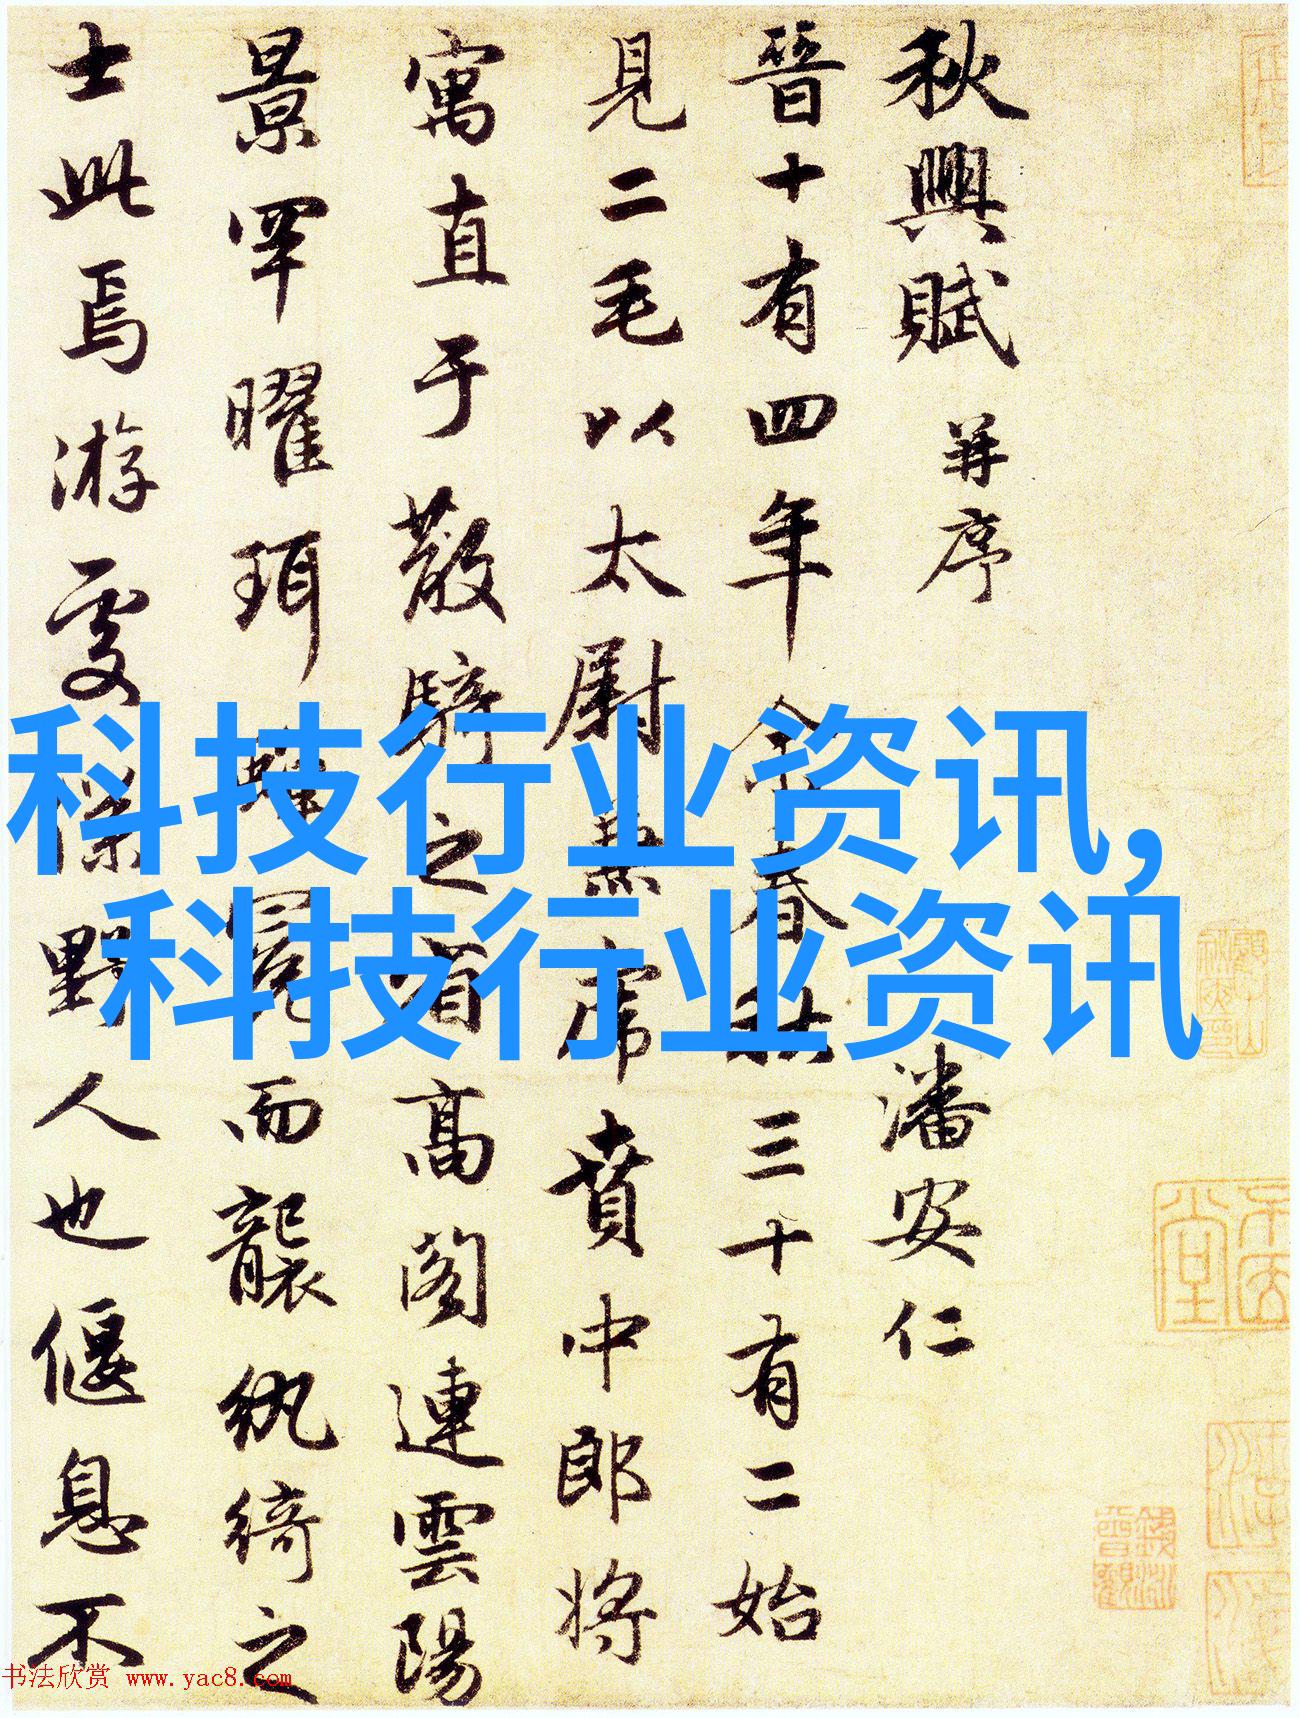 秋興賦 并序 潘安仁
晉十有四年余春秋三十有二始
見二毛以太尉兼虎賁中郎将
寓直于散騎之省高閣連雲陽
景罕曜珥蟬冕而襲紈綺之
士此焉游處僕野人也偃息不
科技行业资讯,
科技行业资讯
书法欣赏 www.yac8.com